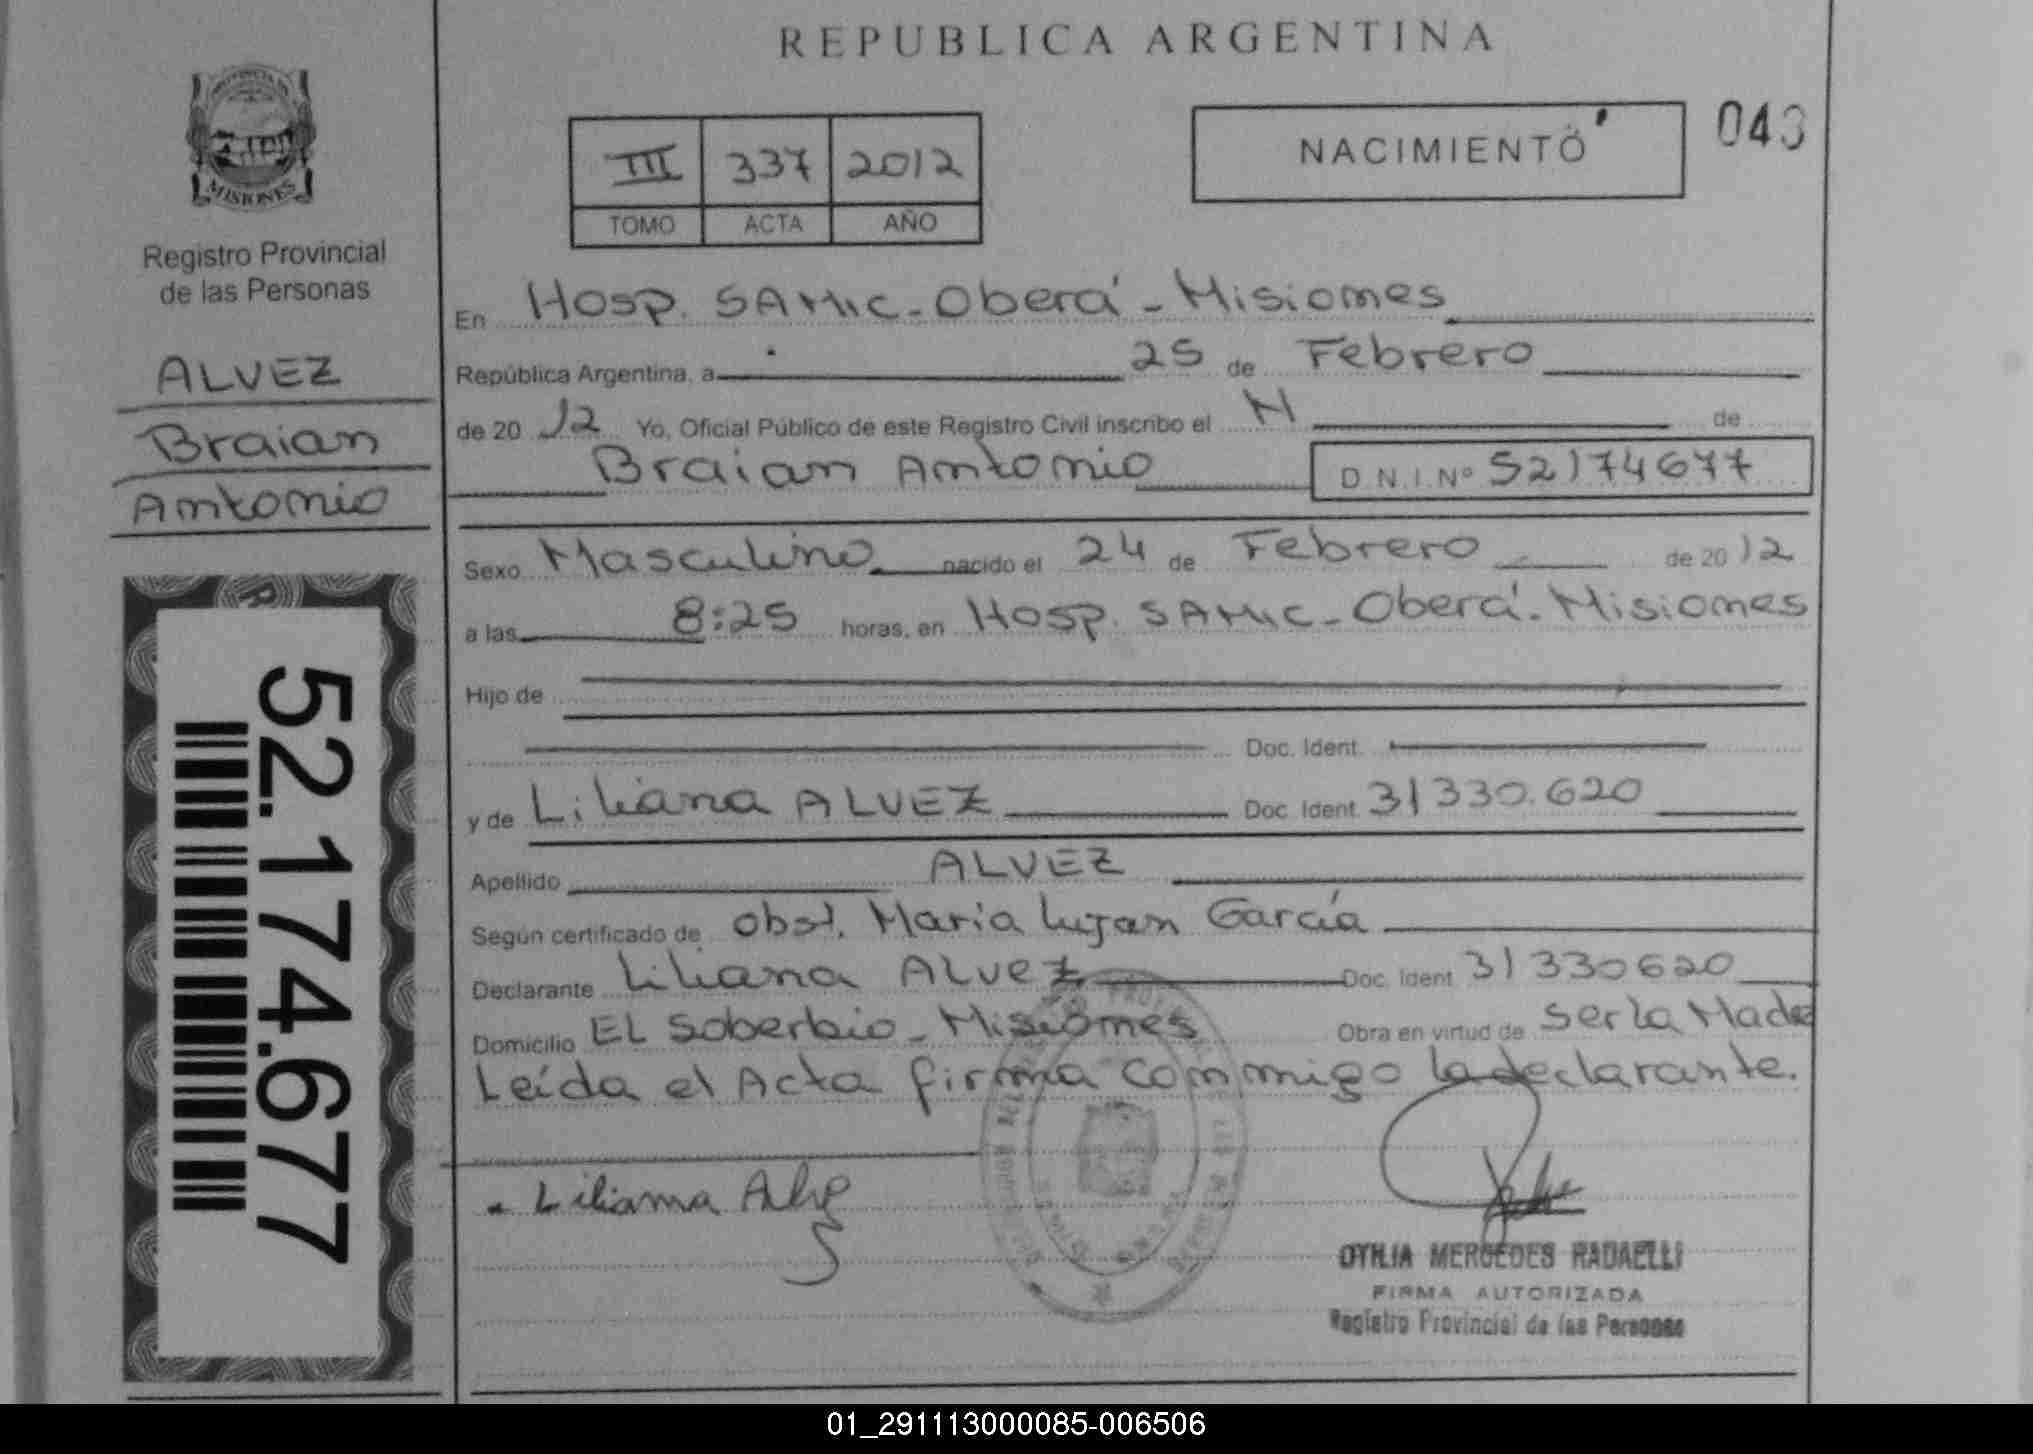 REPUBLICA ARGENTINA
PROVINCIA DE
MISIONES
Registro Provincial
de las Personas
ALVEZ
Braian
Antonio
52.174.677
III 337 2012
TOMO ACTA AÑO
NACIMIENTO
043
En Hosp. SAMIC - Oberá - Misiones
República Argentina, a 25 de Febrero
de 2012 Yo, Oficial Público de este Registro Civil inscribo el N de
Braian Antonio D.N.I. Nº 52174677
Sexo Masculino nacido el 24 de Febrero de 2012
a las 8:25 horas, en Hosp. SAMIC - Oberá - Misiones
Hijo de
Doc. Ident.
y de Liliana ALVEZ Doc. Ident. 31330.620
Apellido ALVEZ
Según certificado de obst. Maria Lujan García
Declarante Liliana ALVEZ Doc. Ident. 31330620
Domicilio EL Soberbio - Misiones Obra en virtud de Ser la Madre
Leída el Acta firma conmigo la declarante.
Liliana Alvez
OTILIA MERCEDES RADAELLI
FIRMA AUTORIZADA
Registro Provincial de las Personas
01_291113000085-006506